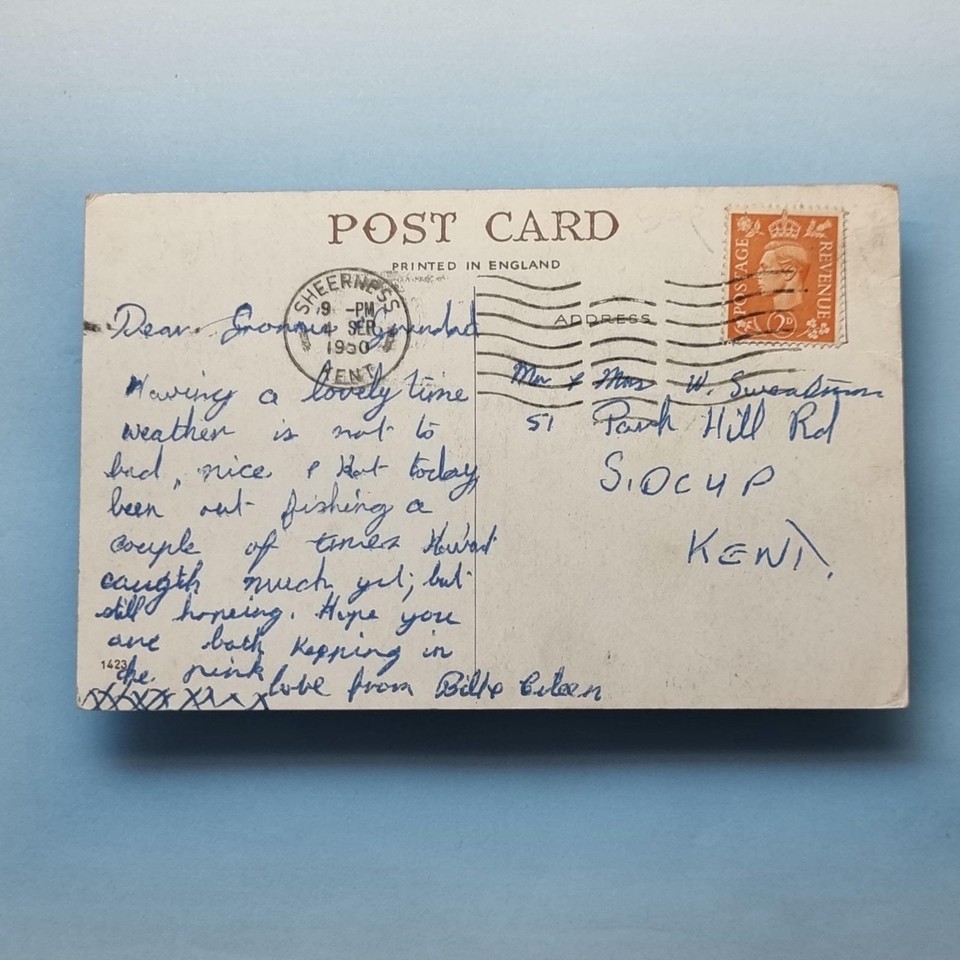 POST CARD
PRINTED IN ENGLAND
SHEERNESS
9 -PM
4 SEP
1950
KENT
ADDRESS
POSTAGE
REVENUE
2D
Dear Grandad
Having a lovely time
weather is not to
bad, nice & Hot today,
been out fishing a
couple of times Hav'ont
caugth much yet; but
still hopeing. Hope you
are both Kepping in
the pink
love from Bill & Eileen
XXXXXXX
1423
Mr & Mrs W.
51 Park Hill Rd
SIDCUP
KENT.